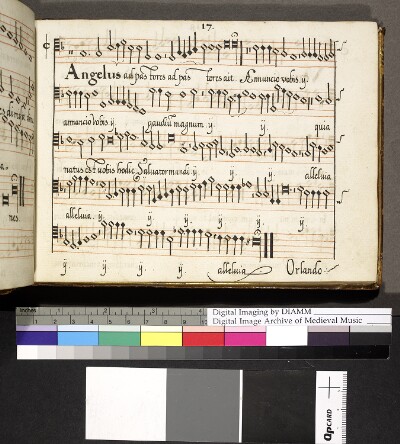 17.
C
Angelus ad pastores ad pas tores ait Annuncio vobis ij.
annuncio vobis ij. gaudiū magnum ij. ij. quia
natus est vobis hodie Salvator mundi ij. ij. ij. alleluia
alleluia. ij. ij. ij. ij. ij. ij.
ij ij. ij. ij. alleluia Orlando
res
inches
Digital Imaging by DIAMM
Digital Image Archive of Medieval Music
QPCARD